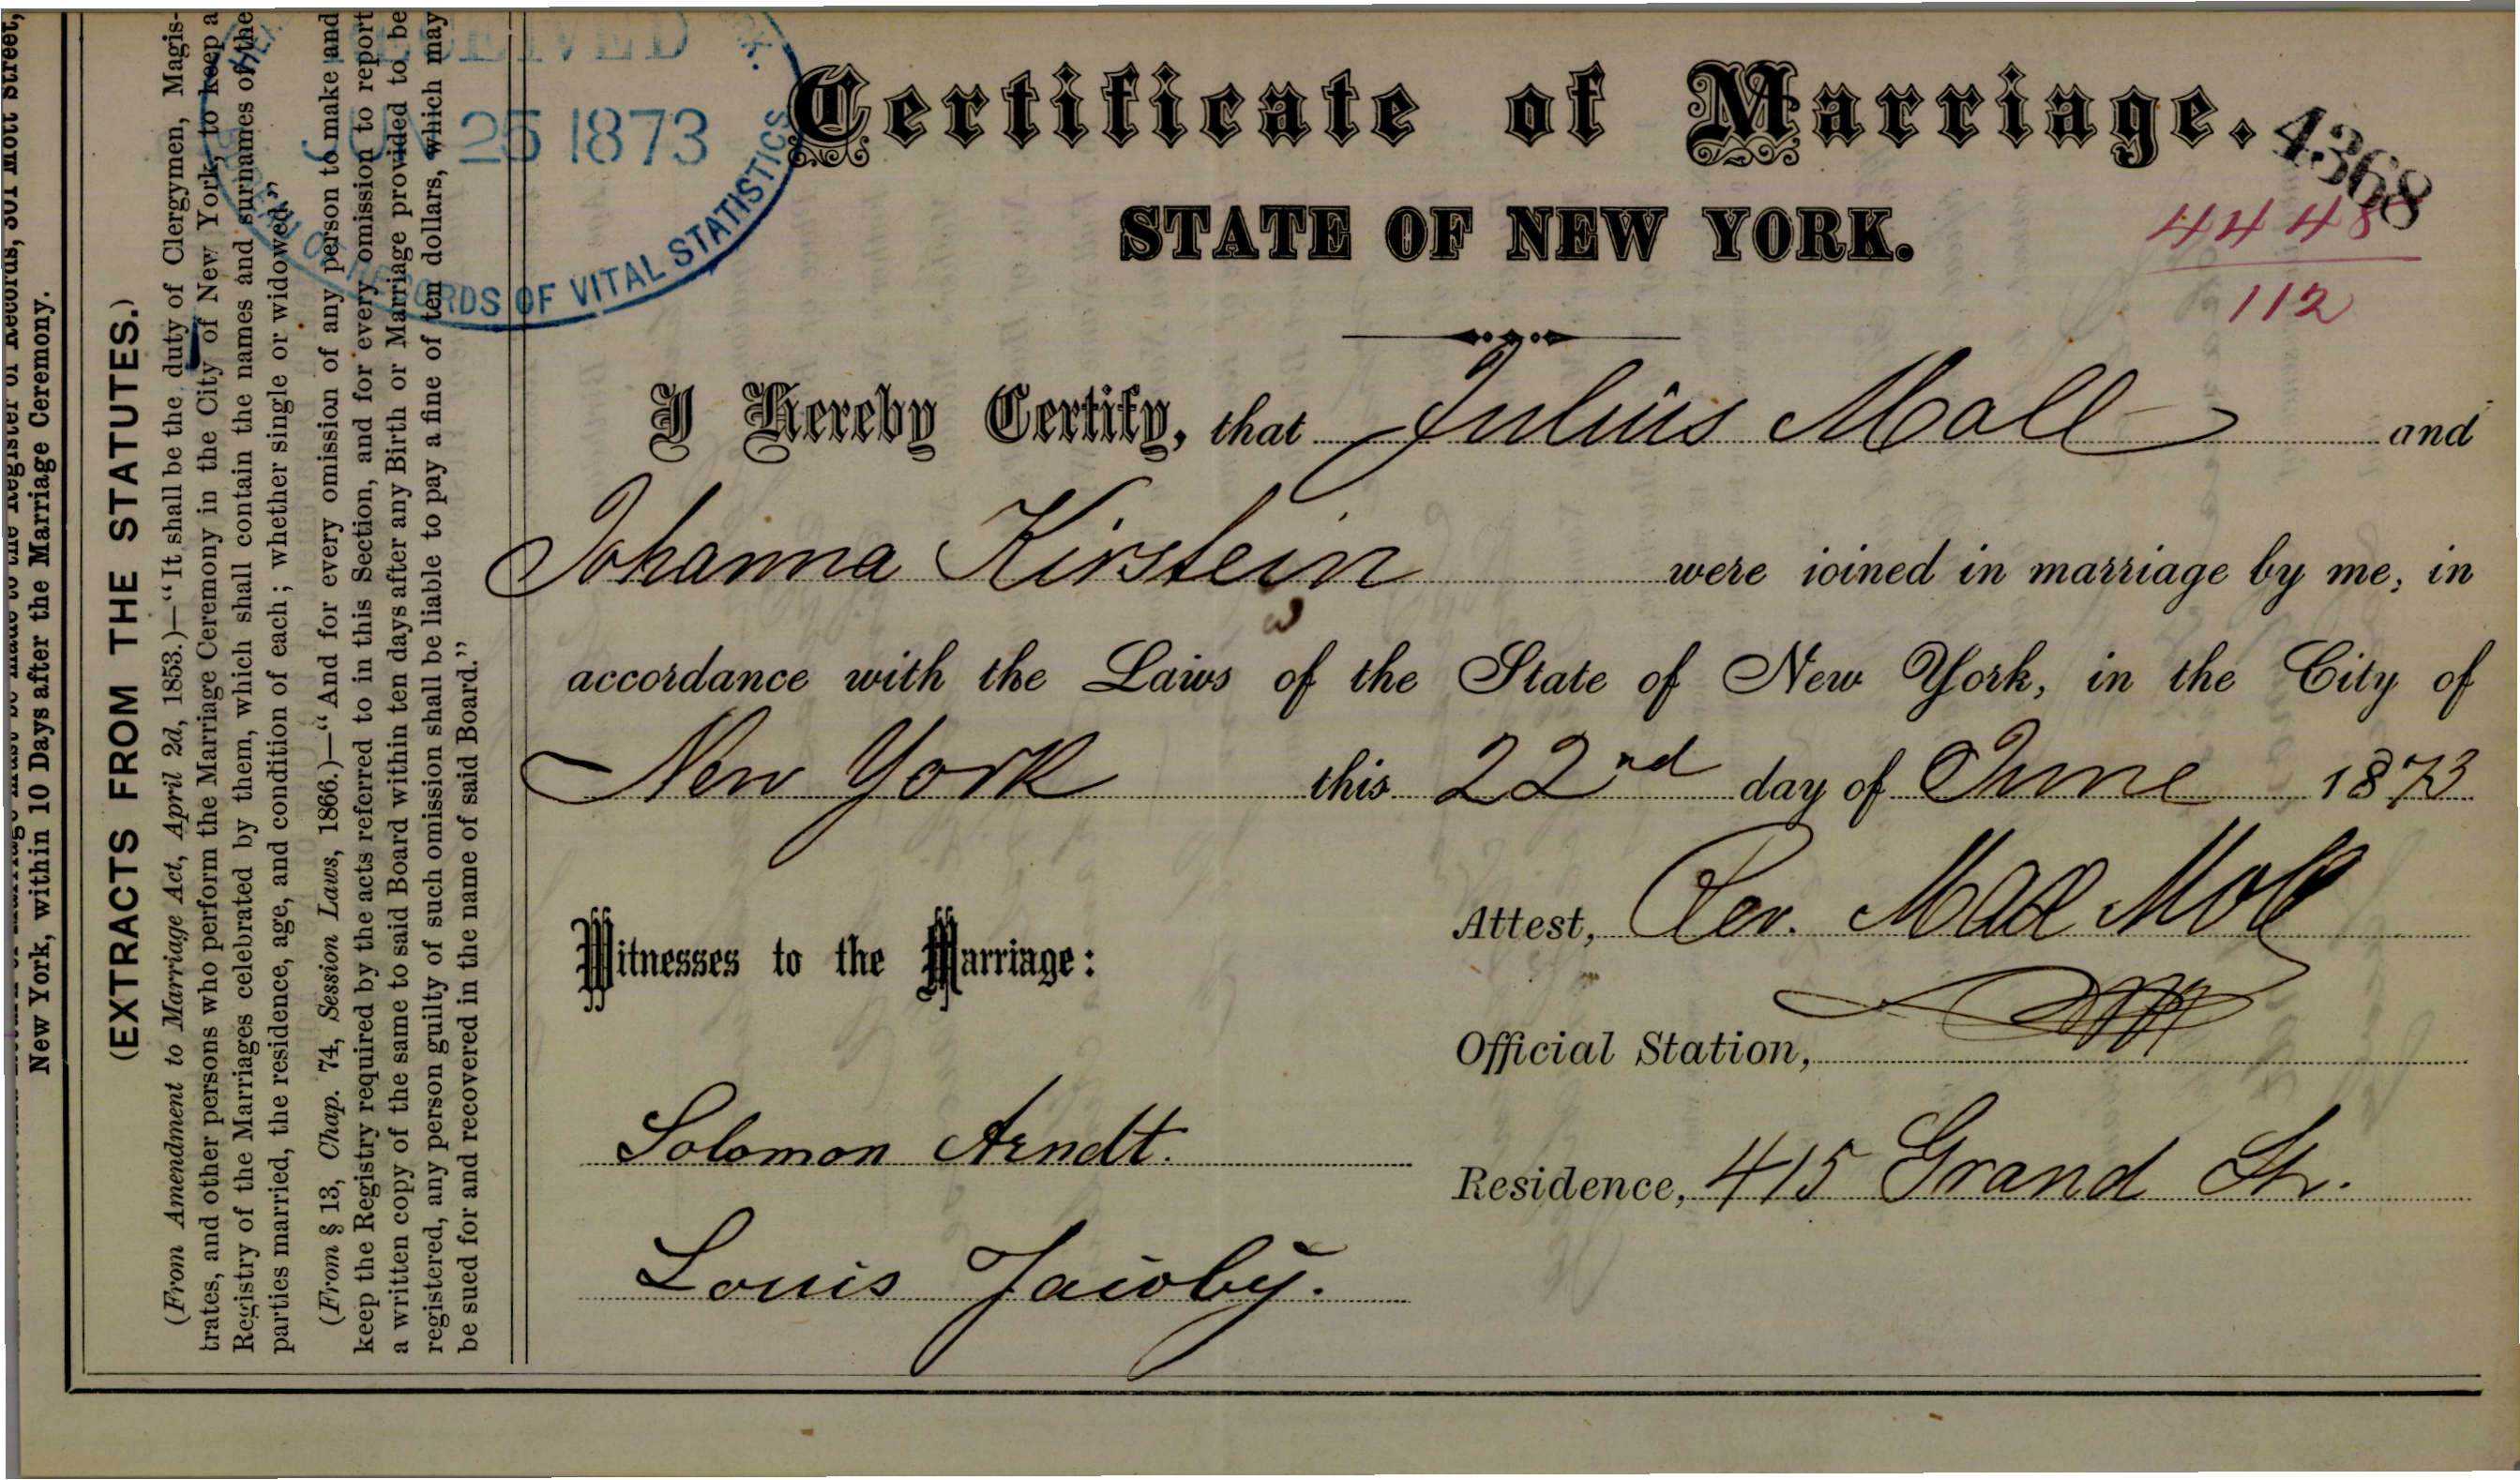 Return of Marriage must be made to the Register of Records, 301 Mott Street,
New York, within 10 Days after the Marriage Ceremony.
(EXTRACTS FROM THE STATUTES.)
(From Amendment to Marriage Act, April 2d, 1853.)—“It shall be the duty of Clergymen, Magis-
trates, and other persons who perform the Marriage Ceremony in the City of New York, to keep a
Registry of the Marriages celebrated by them, which shall contain the names and surnames of the
parties married, the residence, age, and condition of each; whether single or widowed.”
(From § 13, Chap. 74, Session Laws, 1866.)—“And for every omission of any person to make and
keep the Registry required by the acts referred to in this Section, and for every omission to report
a written copy of the same to said Board within ten days after any Birth or Marriage provided to be
registered, any person guilty of such omission shall be liable to pay a fine of ten dollars, which may
be sued for and recovered in the name of said Board.”
RECEIVED
JUN 25 1873
BUREAU OF RECORDS OF VITAL STATISTICS
Certificate of Marriage.
4368
STATE OF NEW YORK.
4448
112
I Hereby Certify, that Julius Moll and
Johanna Kirstein were joined in marriage by me, in
accordance with the Laws of the State of New York, in the City of
New York this 22nd day of June 1873
Witnesses to the Marriage:
Attest, Rev. Max Moll
Official Station,
Solomon Arndt.
Residence, 415 Grand Str.
Louis Jacoby.